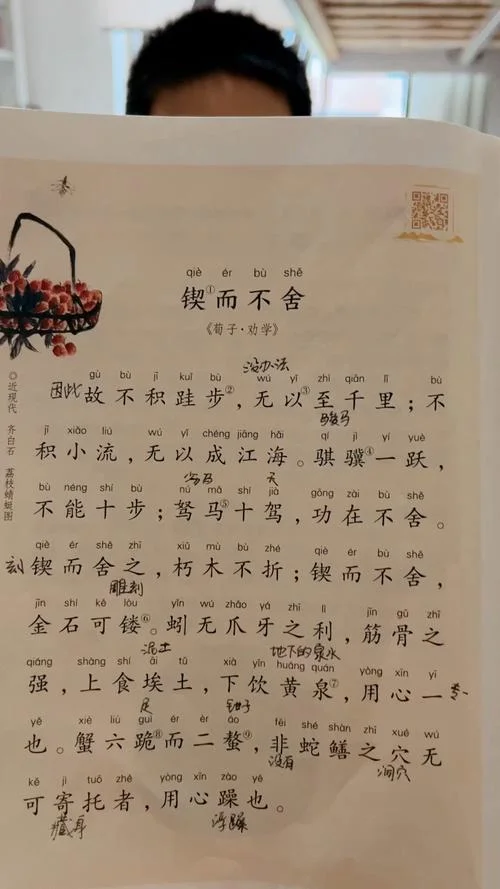 qiè ér bù shě
锲而不舍①
《荀子·劝学》
没办法
gù bù jī kuǐ bù wú yǐ zhì qiān lǐ bù
因此 故不积跬步②，无以③至千里；不
骏马
jī xiǎo liú wú yǐ chéng jiāng hǎi qí jì yí yuè
积小流，无以成江海。骐骥④一跃，
天
bù néng shí bù nú mǎ shí jià gōng zài bù shě
不能十步；驽马⑤十驾，功在不舍。
qiè ér shě zhī xiǔ mù bù zhé qiè ér bù shě
刻 锲而舍之，朽木不折；锲而不舍，
雕刻
jīn shí kě lòu yǐn wú zhǎo yá zhī lì jīn gǔ zhī
金石可镂⑥。蚓无爪牙之利，筋骨之
泥土 地下的泉水
qiáng shàng shí āi tǔ xià yǐn huáng quán yòng xīn yī
强，上食埃土，下饮黄泉⑦，用心一
足 钳子
yě xiè liù guì ér èr áo fēi shé shàn zhī xué wú
也。蟹六跪⑧而二螯⑨，非蛇鳝之穴无
没有 洞穴
kě jì tuō zhě yòng xīn zào yě
可寄托者，用心躁也。
藏身 浮躁
◎近现代 齐白石 荔枝蜻蜓图